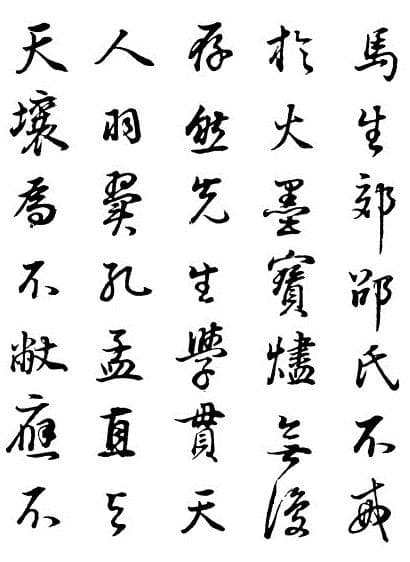 馬生郊邵氏不戒
於火墨寶燼無復
存然先生學貫天
人羽翼孔孟直与
天壤為不敝應不